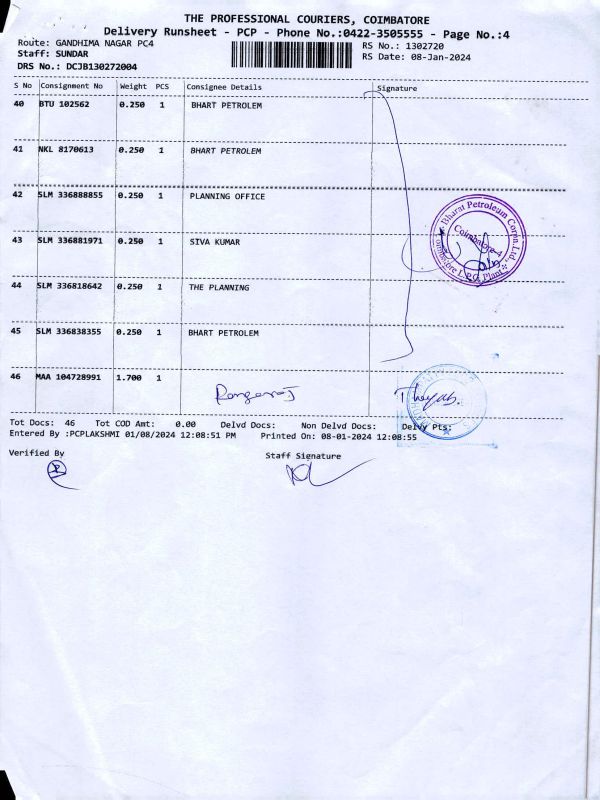 THE PROFESSIONAL COURIERS, COIMBATORE
Delivery Runsheet - PCP - Phone No.:0422-3505555 - Page No.:4
Route: GANDHIMA NAGAR PC4
RS No.: 1302720
Staff: SUNDAR
RS Date: 08-Jan-2024
DRS No.: DCJB130272004
S No Consignment No Weight PCS Consignee Details Signature
40 BTU 102562 0.250 1 BHART PETROLEM
41 NKL 8170613 0.250 1 BHART PETROLEM
42 SLM 336888855 0.250 1 PLANNING OFFICE
43 SLM 336881971 0.250 1 SIVA KUMAR
44 SLM 336818642 0.250 1 THE PLANNING
45 SLM 336838355 0.250 1 BHART PETROLEM
Bharat Petroleum Corpn.Ltd.,
Coimbatore L.P.G. Plant
Coimbatore-4
46 MAA 104728991 1.700 1
Rangaraj
Tot Docs: 46 Tot COD Amt: 0.00 Delvd Docs: Non Delvd Docs: Delvy Pts:
Entered By :PCPLAKSHMI 01/08/2024 12:08:51 PM Printed On: 08-01-2024 12:08:55
Verified By
Staff Signature